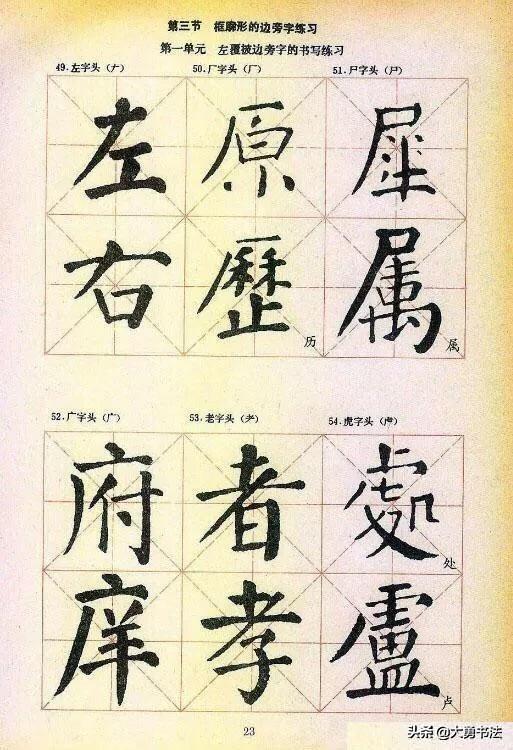 第三节 框廓形的边旁字练习
第一单元 左覆被边旁字的书写练习
49.左字头（𠂇） 50.厂字头（厂） 51.尸字头（尸）
左 原
右 歷 历 属 属
52.广字头（广） 53.老字头（耂） 54.虎字头（虍）
府 者 處 处
庠 孝 盧 卢
23
头条 @大勇书法